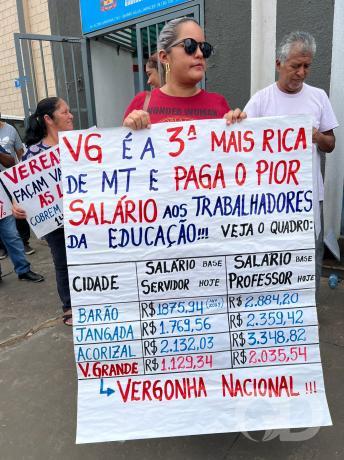 VEREA
FAÇAM VA
AS L
COBREM
VG É A 3ª MAIS RICA
DE MT E PAGA O PIOR
SALÁRIO AOS TRABALHADORES
DA EDUCAÇÃO!!! VEJA O QUADRO:
CIDADE SALÁRIO BASE SERVIDOR HOJE SALÁRIO BASE PROFESSOR HOJE
BARÃO R$ 1875,94 R$ 2.884,20
JANGADA R$ 1.769,56 R$ 2.359,42
ACORIZAL R$ 2.132,03 R$ 3.348,82
V. GRANDE R$ 1.129,34 R$ 2.035,54
↳ VERGONHA NACIONAL!!!